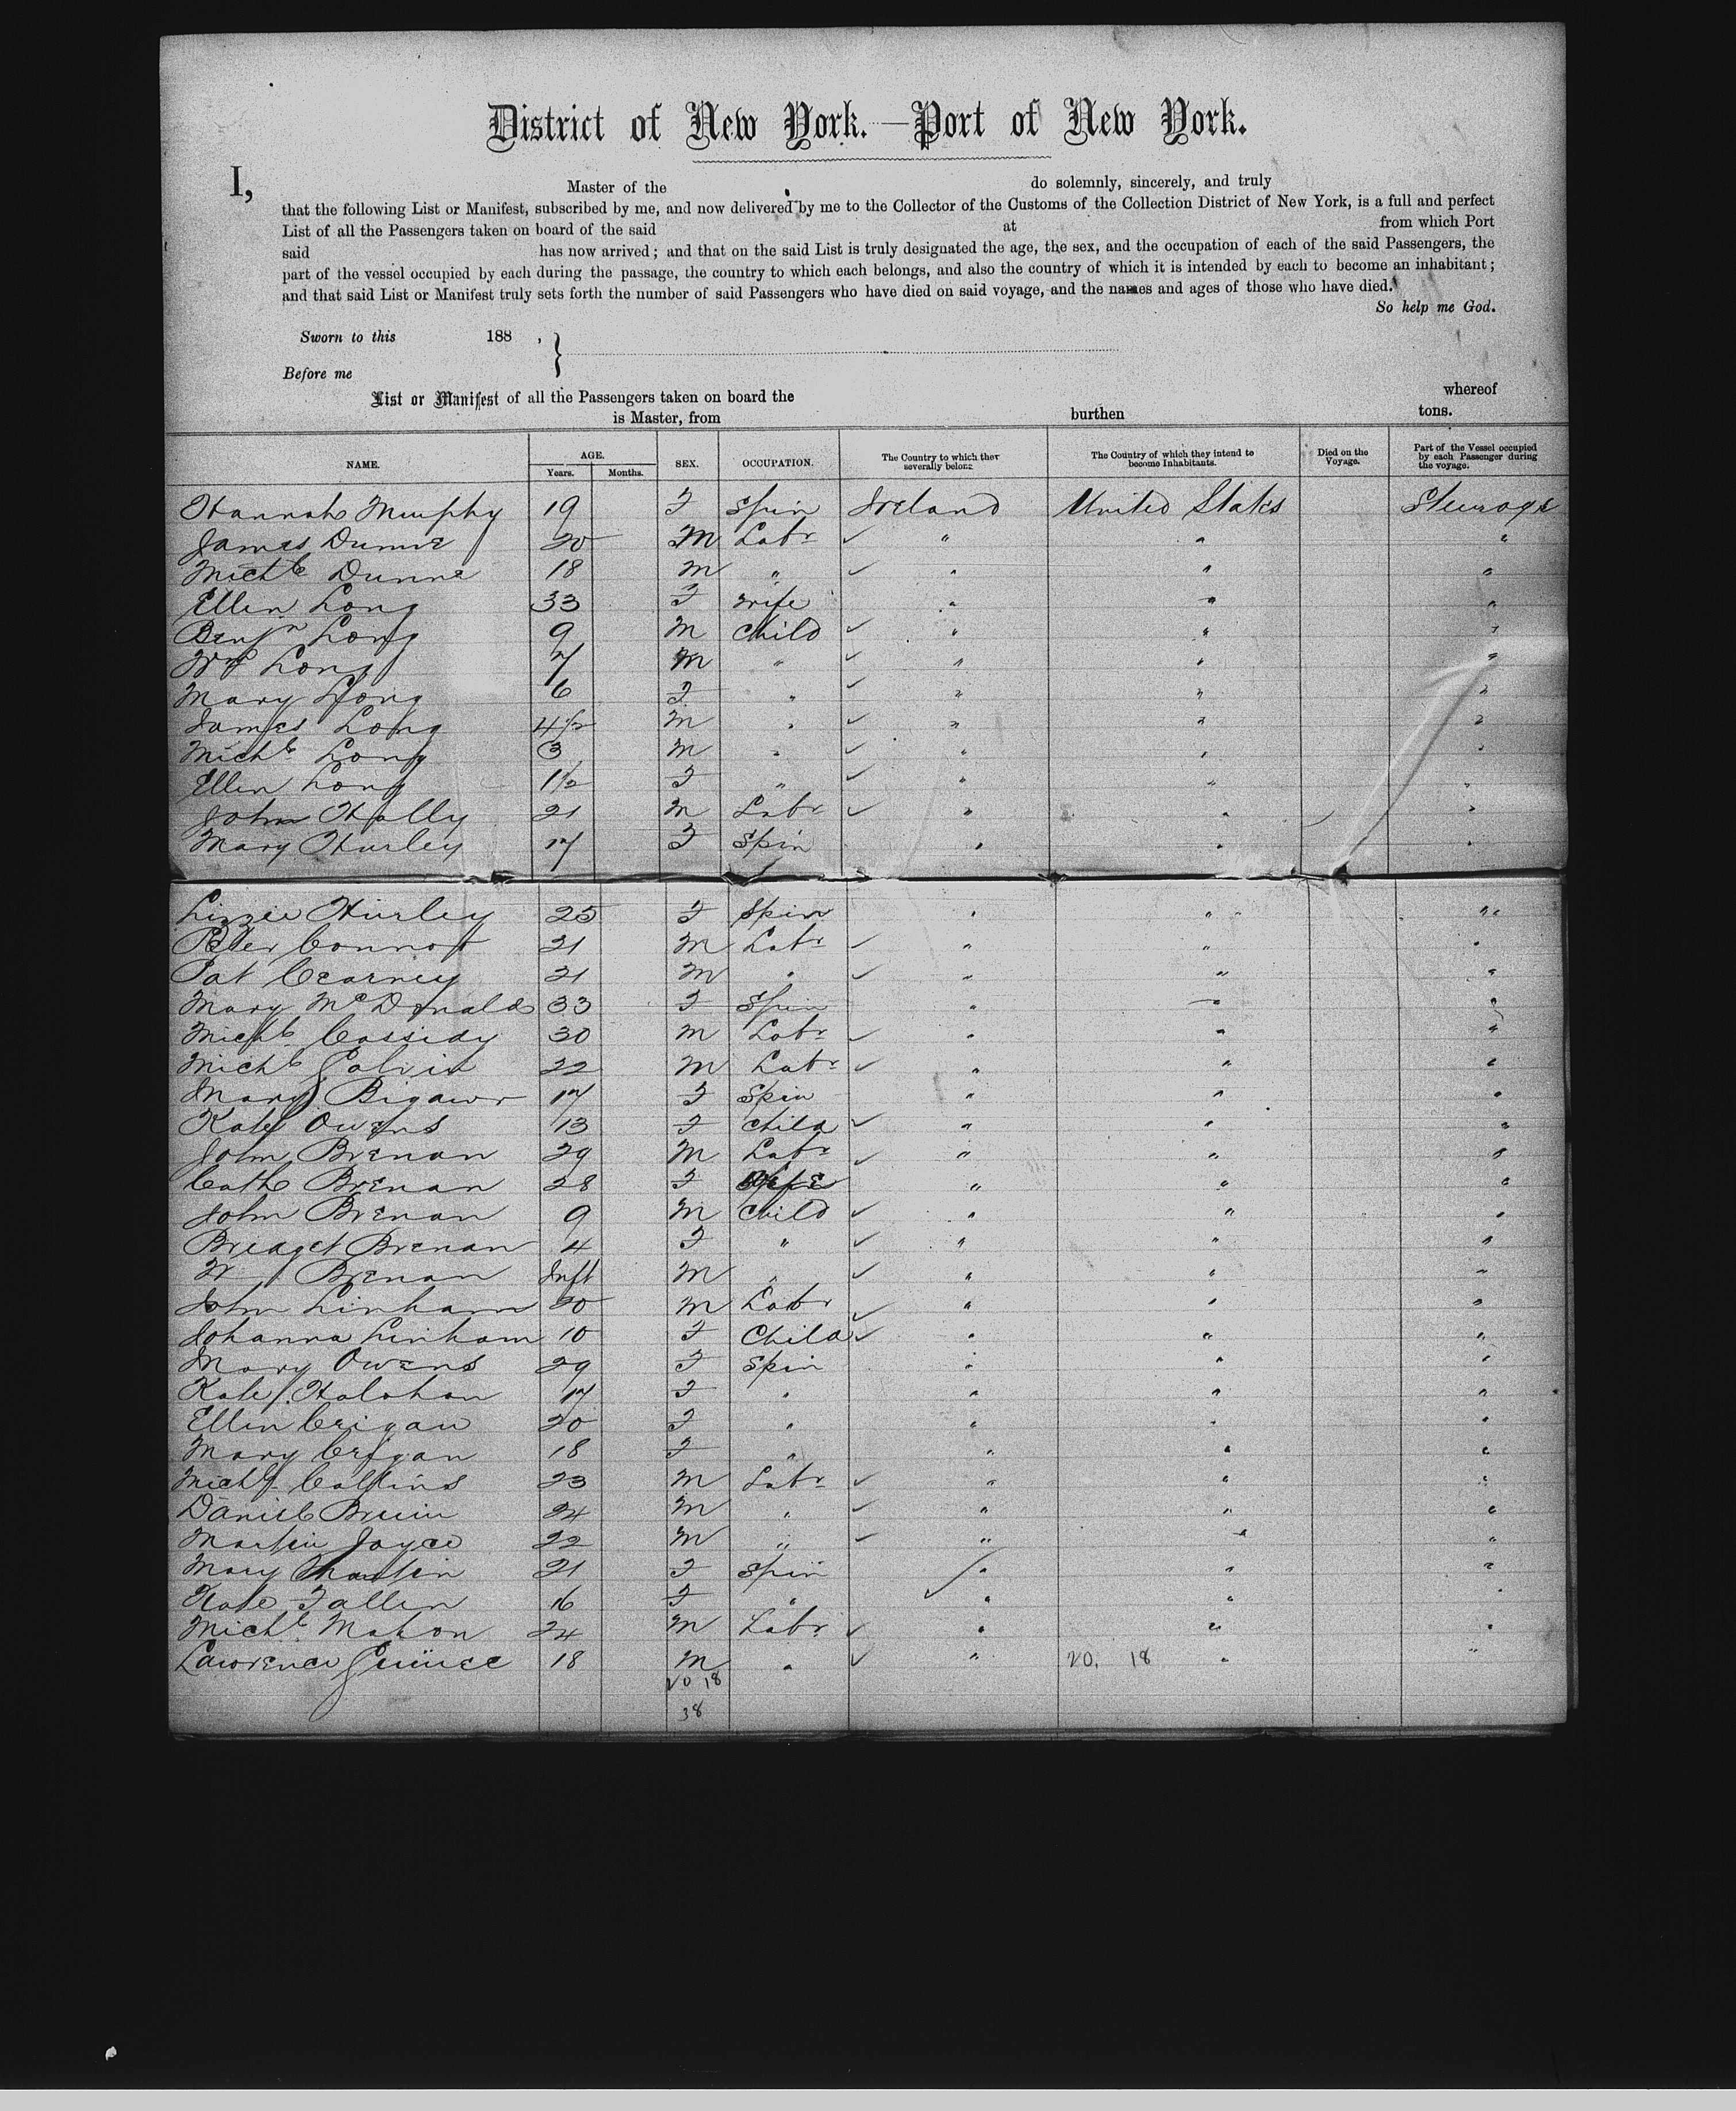 District of New York.—Port of New York.
I, Master of the do solemnly, sincerely, and truly
that the following List or Manifest, subscribed by me, and now delivered by me to the Collector of the Customs of the Collection District of New York, is a full and perfect
List of all the Passengers taken on board of the said at from which Port
said has now arrived; and that on the said List is truly designated the age, the sex, and the occupation of each of the said Passengers, the
part of the vessel occupied by each during the passage, the country to which each belongs, and also the country of which it is intended by each to become an inhabitant;
and that said List or Manifest truly sets forth the number of said Passengers who have died on said voyage, and the names and ages of those who have died.
So help me God.
Sworn to this 188 ,
Before me
List or Manifest of all the Passengers taken on board the whereof
is Master, from burthen tons.
NAME. AGE. Years. Months. SEX. OCCUPATION. The Country to which they severally belong. The Country of which they intend to become Inhabitants. Died on the Voyage. Part of the Vessel occupied by each Passenger during the voyage.
Hannah Murphy 19 F Spin Ireland United States Steerage
James Dunne 20 M Labr ✓ " " "
Michl Dunne 18 M " ✓ " " "
Ellen Long 33 F Wife " " "
Benjn Long 9 M Child ✓ " " "
Wm Long 7 M " ✓ " " "
Mary Long 6 F " ✓ " " "
James Long 4½ M " ✓ " " "
Michl Long 3 M " ✓ " " "
Ellen Long 1½ F " ✓ " " "
John Hally 21 M Labr ✓ " " "
Mary Hurley 17 F Spin " " "
Lizzie Hurley 25 F Spin " " "
Peter Connor 21 M Labr ✓ " " "
Pat Cearney 21 M " ✓ " " "
Mary McDonald 33 F Spin " " "
Michl Cassidy 30 M Labr ✓ " " "
Michl Galvin 22 M Labr ✓ " " "
Mary 17 F Spin " " "
Kate Owens 13 F Child ✓ " " "
John Brenan 29 M Labr ✓ " " "
Cath Brenan 28 F Wife " " "
John Brenan 9 M Child ✓ " " "
Bridget Brenan 4 F " ✓ " " "
W Brenan Inft M " ✓ " " "
John Linham 20 M Labr ✓ " " "
Johanna Linham 10 F Child ✓ " " "
Mary Owens 29 F Spin " " "
Kate Halohan 17 F " " " "
Ellen Crigan 20 F " " " "
Mary Crigan 18 F " " " "
Michl Collins 23 M Labr ✓ " " "
Daniel Bruin 24 M " ✓ " " "
Martin Joyce 22 M " ✓ " " "
Mary Martin 21 F Spin " " "
Kate Fallen 16 F " ✓ " " "
Michl Mahon 24 M Labr ✓ " " "
Lawrence 18 M " ✓ " 20. 18 " "
20 18
38